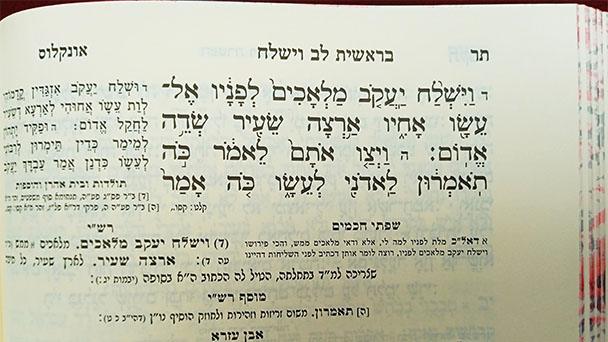 תר בראשית לב וישלח אונקלוס
ד וַיִּשְׁלַ֨ח יַעֲקֹ֤ב מַלְאָכִים֙ לְפָנָ֔יו אֶל־
עֵשָׂ֖ו אָחִ֑יו אַ֥רְצָה שֵׂעִ֖יר שְׂדֵ֥ה
אֱדֽוֹם׃ ה וַיְצַ֤ו אֹתָם֙ לֵאמֹ֔ר כֹּ֣ה
תֹאמְר֔וּן לַֽאדֹנִ֖י לְעֵשָׂ֑ו כֹּ֤ה אָמַר֙
ד וּשְׁלַח יַעֲקֹב אִזְגַּדִּין קֳדָמוֹהִי
לְוַת עֵשָׂו אֲחוּהִי לְאַרְעָא דְשֵׂעִיר
לַחֲקַל אֱדוֹם׃ ה וּפַקִּיד יָתְהוֹן
לְמֵימַר כְּדֵין תֵּימְרוּן
לְעֵשָׂו כִּדְנַן אֲמַר עַבְדָּךְ
תולדות ובית אהרן והוספות
קלט: קסו,
שפתי חכמים
א דאל"כ מלת לפניו למה לי, אלא ודאי מלאכים ממש, והכי פירושו
וישלח יעקב מלאכים לפניו, רוצה לומר אותן דכתיב לפני השליחות דהיינו
רש"י
(ד) וישלח יעקב מלאכים. מלאכים א ממש
עה ד): ארצה שעיר. לארץ שעיר, כל
שצריכה למ"ד בתחלתה, הטיל לה הכתוב ה"א בסופה (יבמות יג:):
מוסף רש"י
[ה] תאמרון. משום זריזות וזהירות ולחוזק הוסיף נו"ן
אבן עזרא